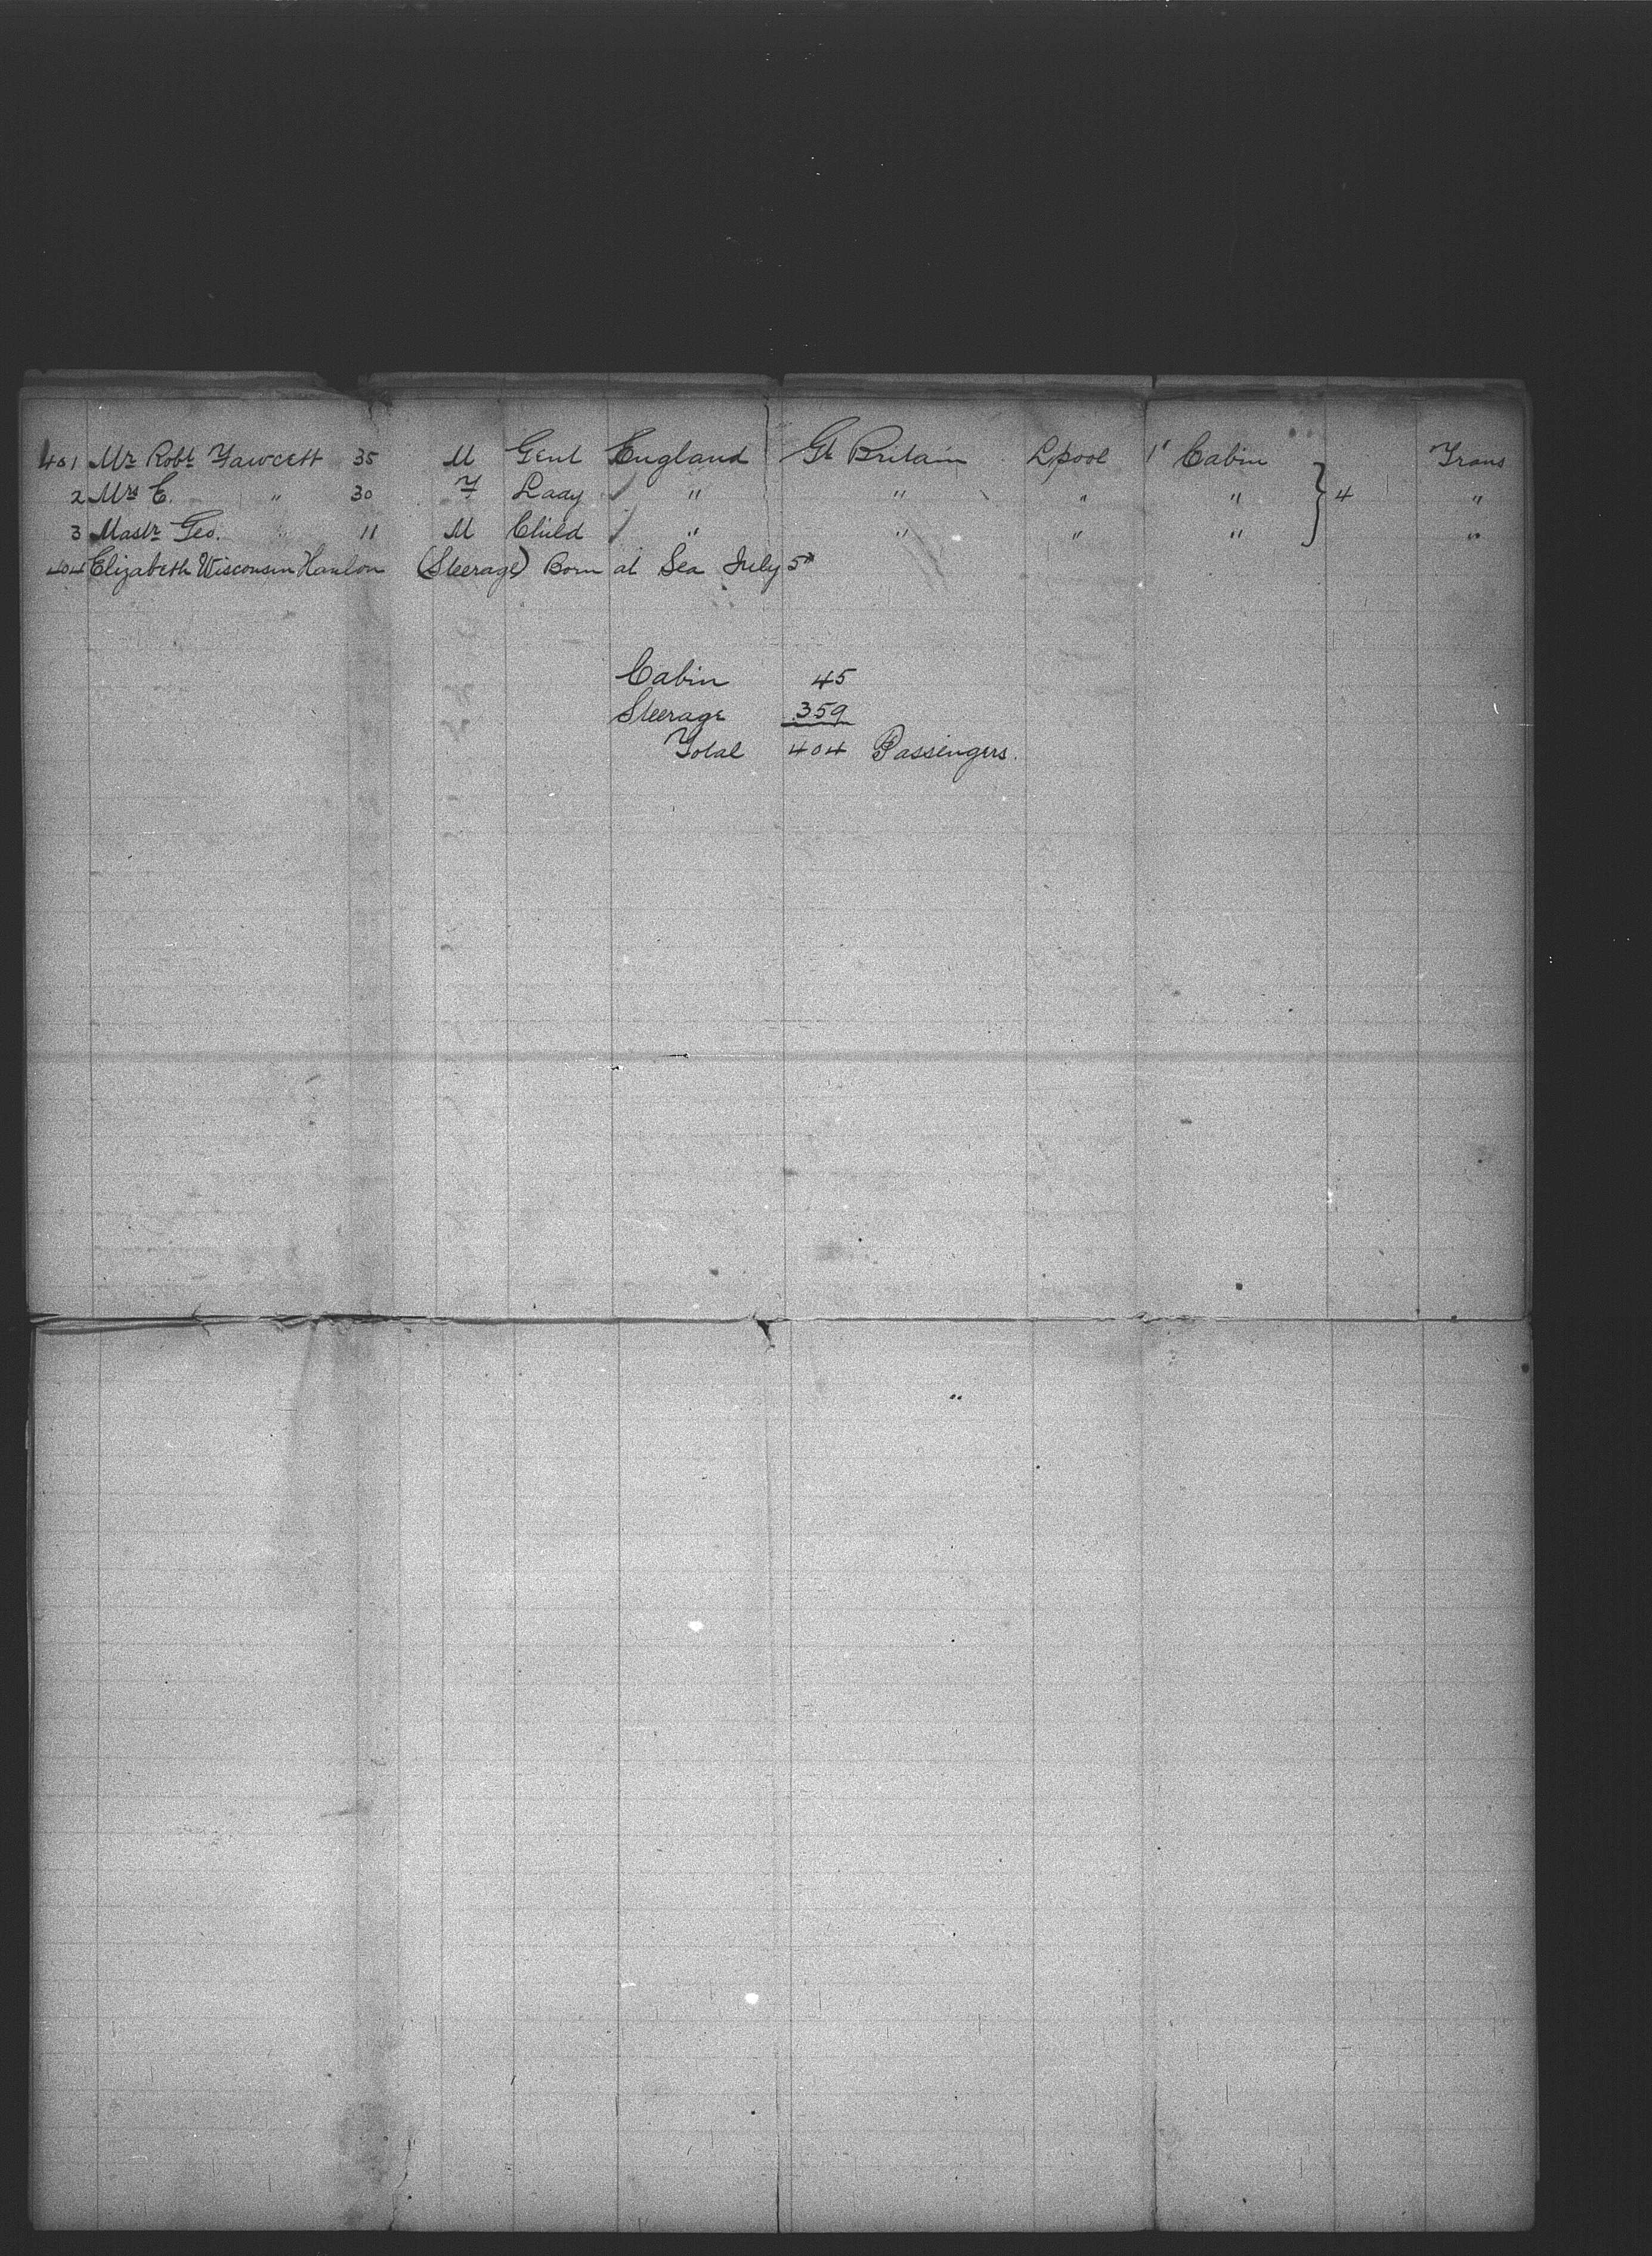 401 Mr Robt Fawcett 35 M Gent England Gt Britain L'pool 1t Cabin Trans
2 Mrs C. " 30 F Lady " " " " } 4 "
3 Mastr Geo. " 11 M Child " " " " "
404 Elizabeth Wisconsin Hanlon (Steerage) Born at Sea July 5th
Cabin 45
Steerage 359
Total 404 Passengers.